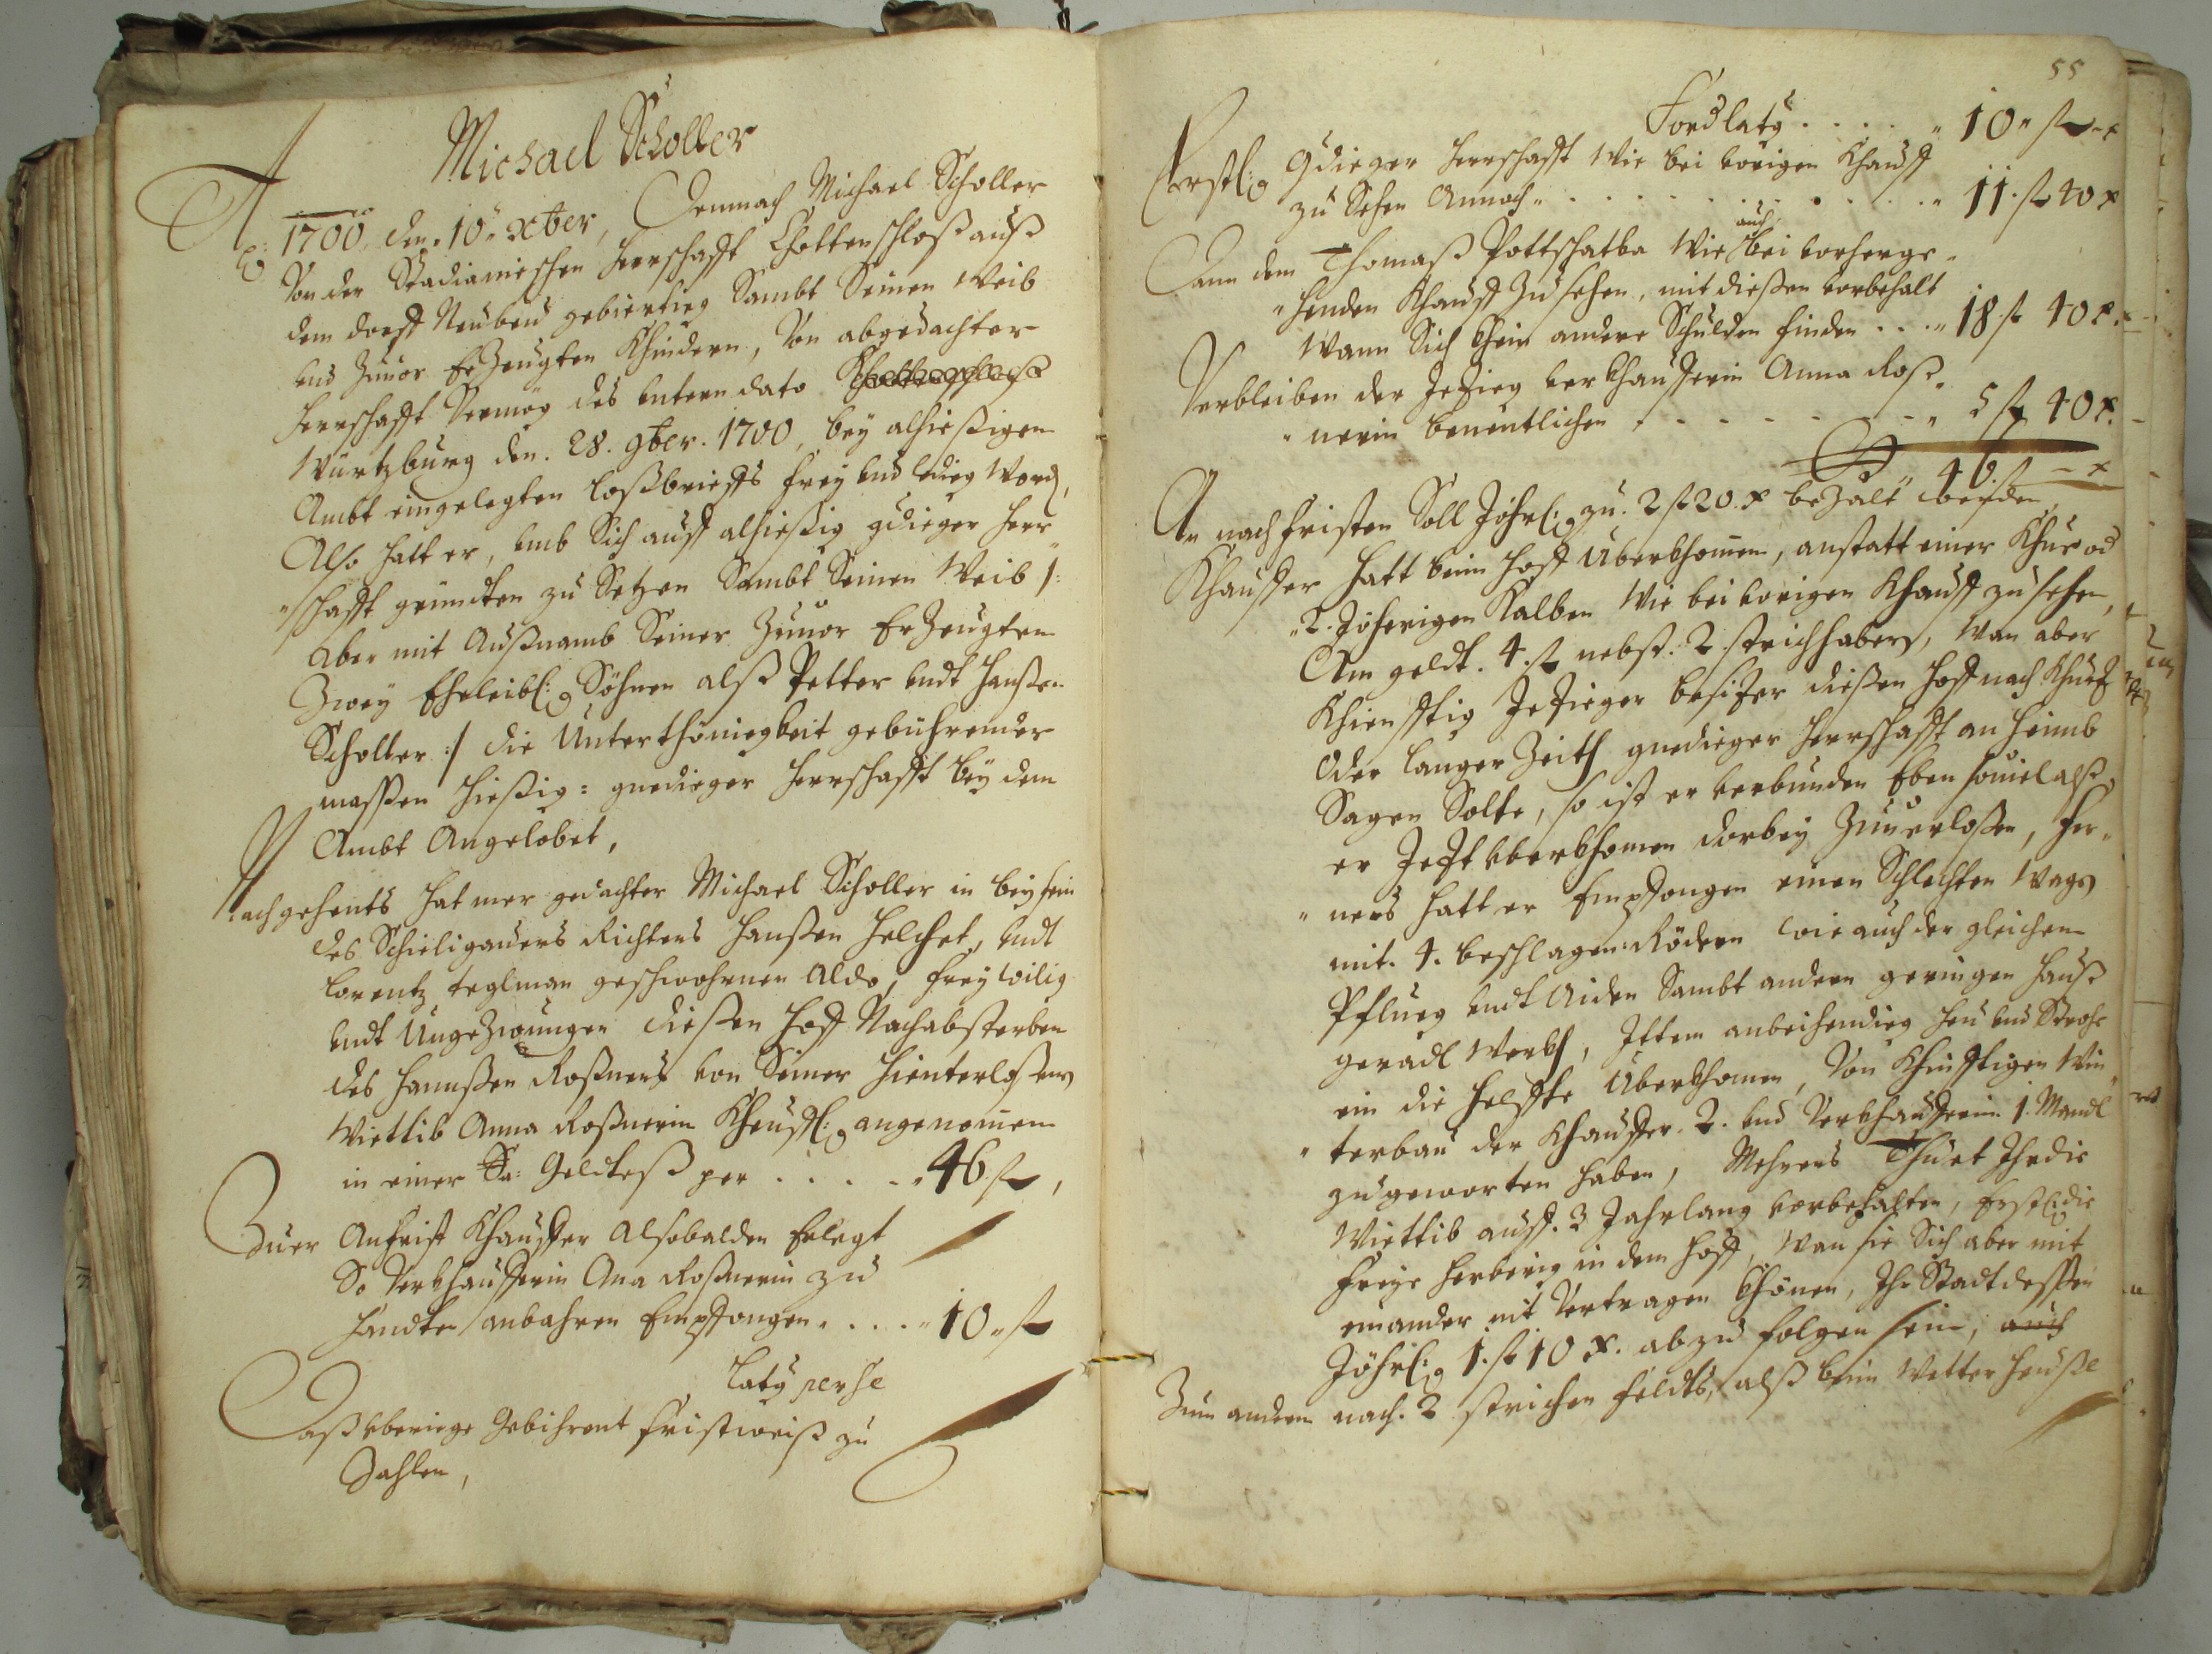 Michael Scholler
Ao: 1700 den. 10. Xber, Demnach Michael Scholler
Von der Stadianischen herrschafft Chottenschloß auß
dem dorff Neubeu gebiertieg Sambt Seinen Weib
vnd Zuuor Erzeugten Khindern, Von abgedachter
herrschafft Vermög des vntern dato
Würtzburg den. 28. 9ber. 1700, bey alhießigen
Ambt eingelegten loßbrieffs frey vnd ledieg word,
Also hatt er, vmb Sich auff alhießig gdieger herr
"schafft gründten zu Setzen Sambt Seinen Weib /:
aber mit Außnamb Seiner Zuuor Erzeugten
Zwey Eheleibl: Söhnen alß Petter vndt Hanßen
Scholler :/ die Unterthöniegkeit gebührender
massen hießig: gnedieger herrschafft bey dem
Ambt Angelobet,
Nachgehents hat mer gedachter Michael Scholler in beysein
des Schieligauers Richters Hanßen Helchet, vndt
Lorentz teglman geschwohrnen alda, freywilig
vndt Ungezwungen dießen hoff Nachabsterben
des Hannßen Roßners von Seiner hienterloßens
Wiettib Anna Roßnerin Kheuffl: angenomen
in einer Sa: Geldteß per . . . . . 46 f,
Zuer Anfrist Khauffer Alsobalden Erlegt
So Verkhaufferin Ana Roßnerin zu
handten anbahren Empfongen. . . . . " 10 " f
Laty per se
Daß vberiege Gebihrent fristweiß zu
Zahlen,
55
Fordlaty . . . . " 10 " f - x
Erstl: Gdieger herrschafft Wie bei vorigen Khauff
zu Sehen Annoch " . . . . . . . . . . . " 11 f 40 x
auch
Dann dem Thomaß Pottschatka Wie bei vorherge-
"henden Khauff zu sehen, mit dießen vorbehalt
Wann Sich Khein andere Schulden finden . . . " 18 f 40 x.
Verbleiben der Jeziegg verkhaufferin Anna Roß-
"nerin benentlichen . - - - - - - - " 5 f 40 x.
Sa " 46 f - x
An nachfristen Soll Jöhrl: zu. 2 f 20. x bezalt werden,
Khauffer hatt beim hoff Uberkhomen, anstatt einer Khue od
"2. Jöherigen Kalben Wie bei vorigen Khauff zu sehen,
Am geldt. 4. f nebst. 2. strichhabern, Wan aber
Khienfftig Jezieger besizer dießen hoff nach Khurz
Oder langer Zeith gnedieger herrschafft an heimb
Sagen Solte, so ist er verbunden Eben souiel alß
er Jezt vberkhomen dorbey Zuuerloßen, fer-
"ners hatt er Empfongen einen Schlechten Wagen
mit. 4. beschlagen: Rödern wie auch der gleichen
Pflueg vndt Aiden Sambt andern geringen hauß
geradt Werkh, Ittem anbeihendieg heu vnd Stroh
ein die helffte Uberkhomen, Von Khinfftigen Win
"terbau der Khauffer. 2. vnd Verkhaufferin 1. Mandl
zugeworten haben, Mehrers Thuet Ihr die
Wiettib auff. 3 Jahrlang vorbehalten, Erstl: die
freye herberig in dem hoff, Wan sie Sich aber mit
einander nit Vertragen Khönen, Ihr Stadt dessen
Jöhrl: 1. f 10 x. abzu folgen sein, auch
Zum andern nach. 2 strichen feldts, alß beim Wetter Heußl